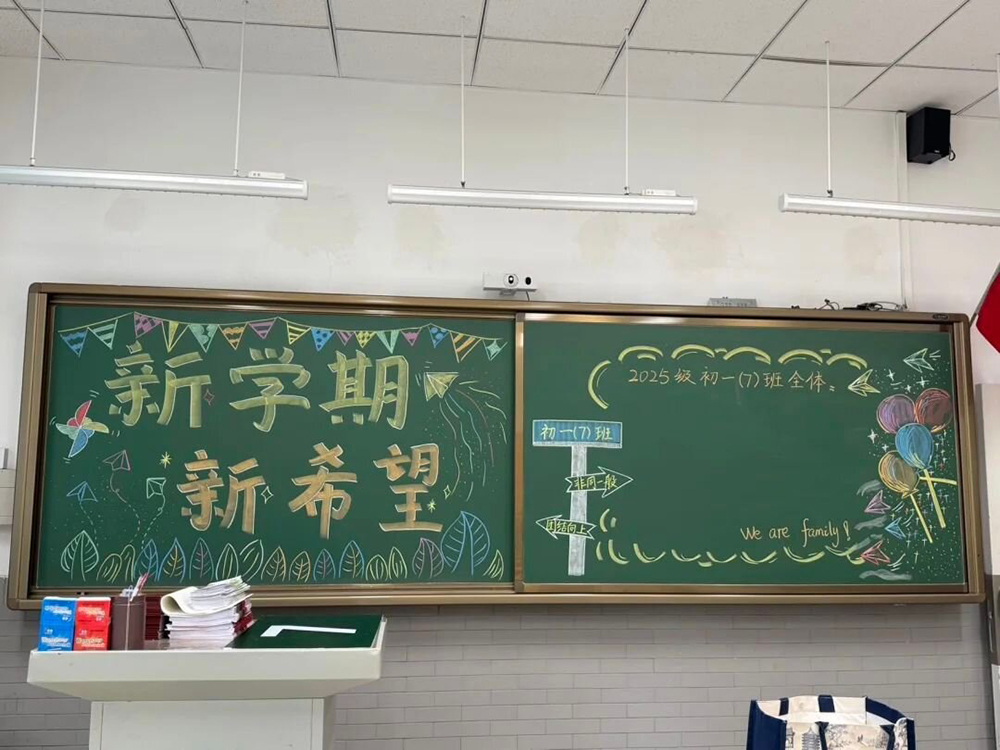 新学期
新希望
2025级初一(7)班全体:
初一(7)班
非同一般
团结向上
We are family!